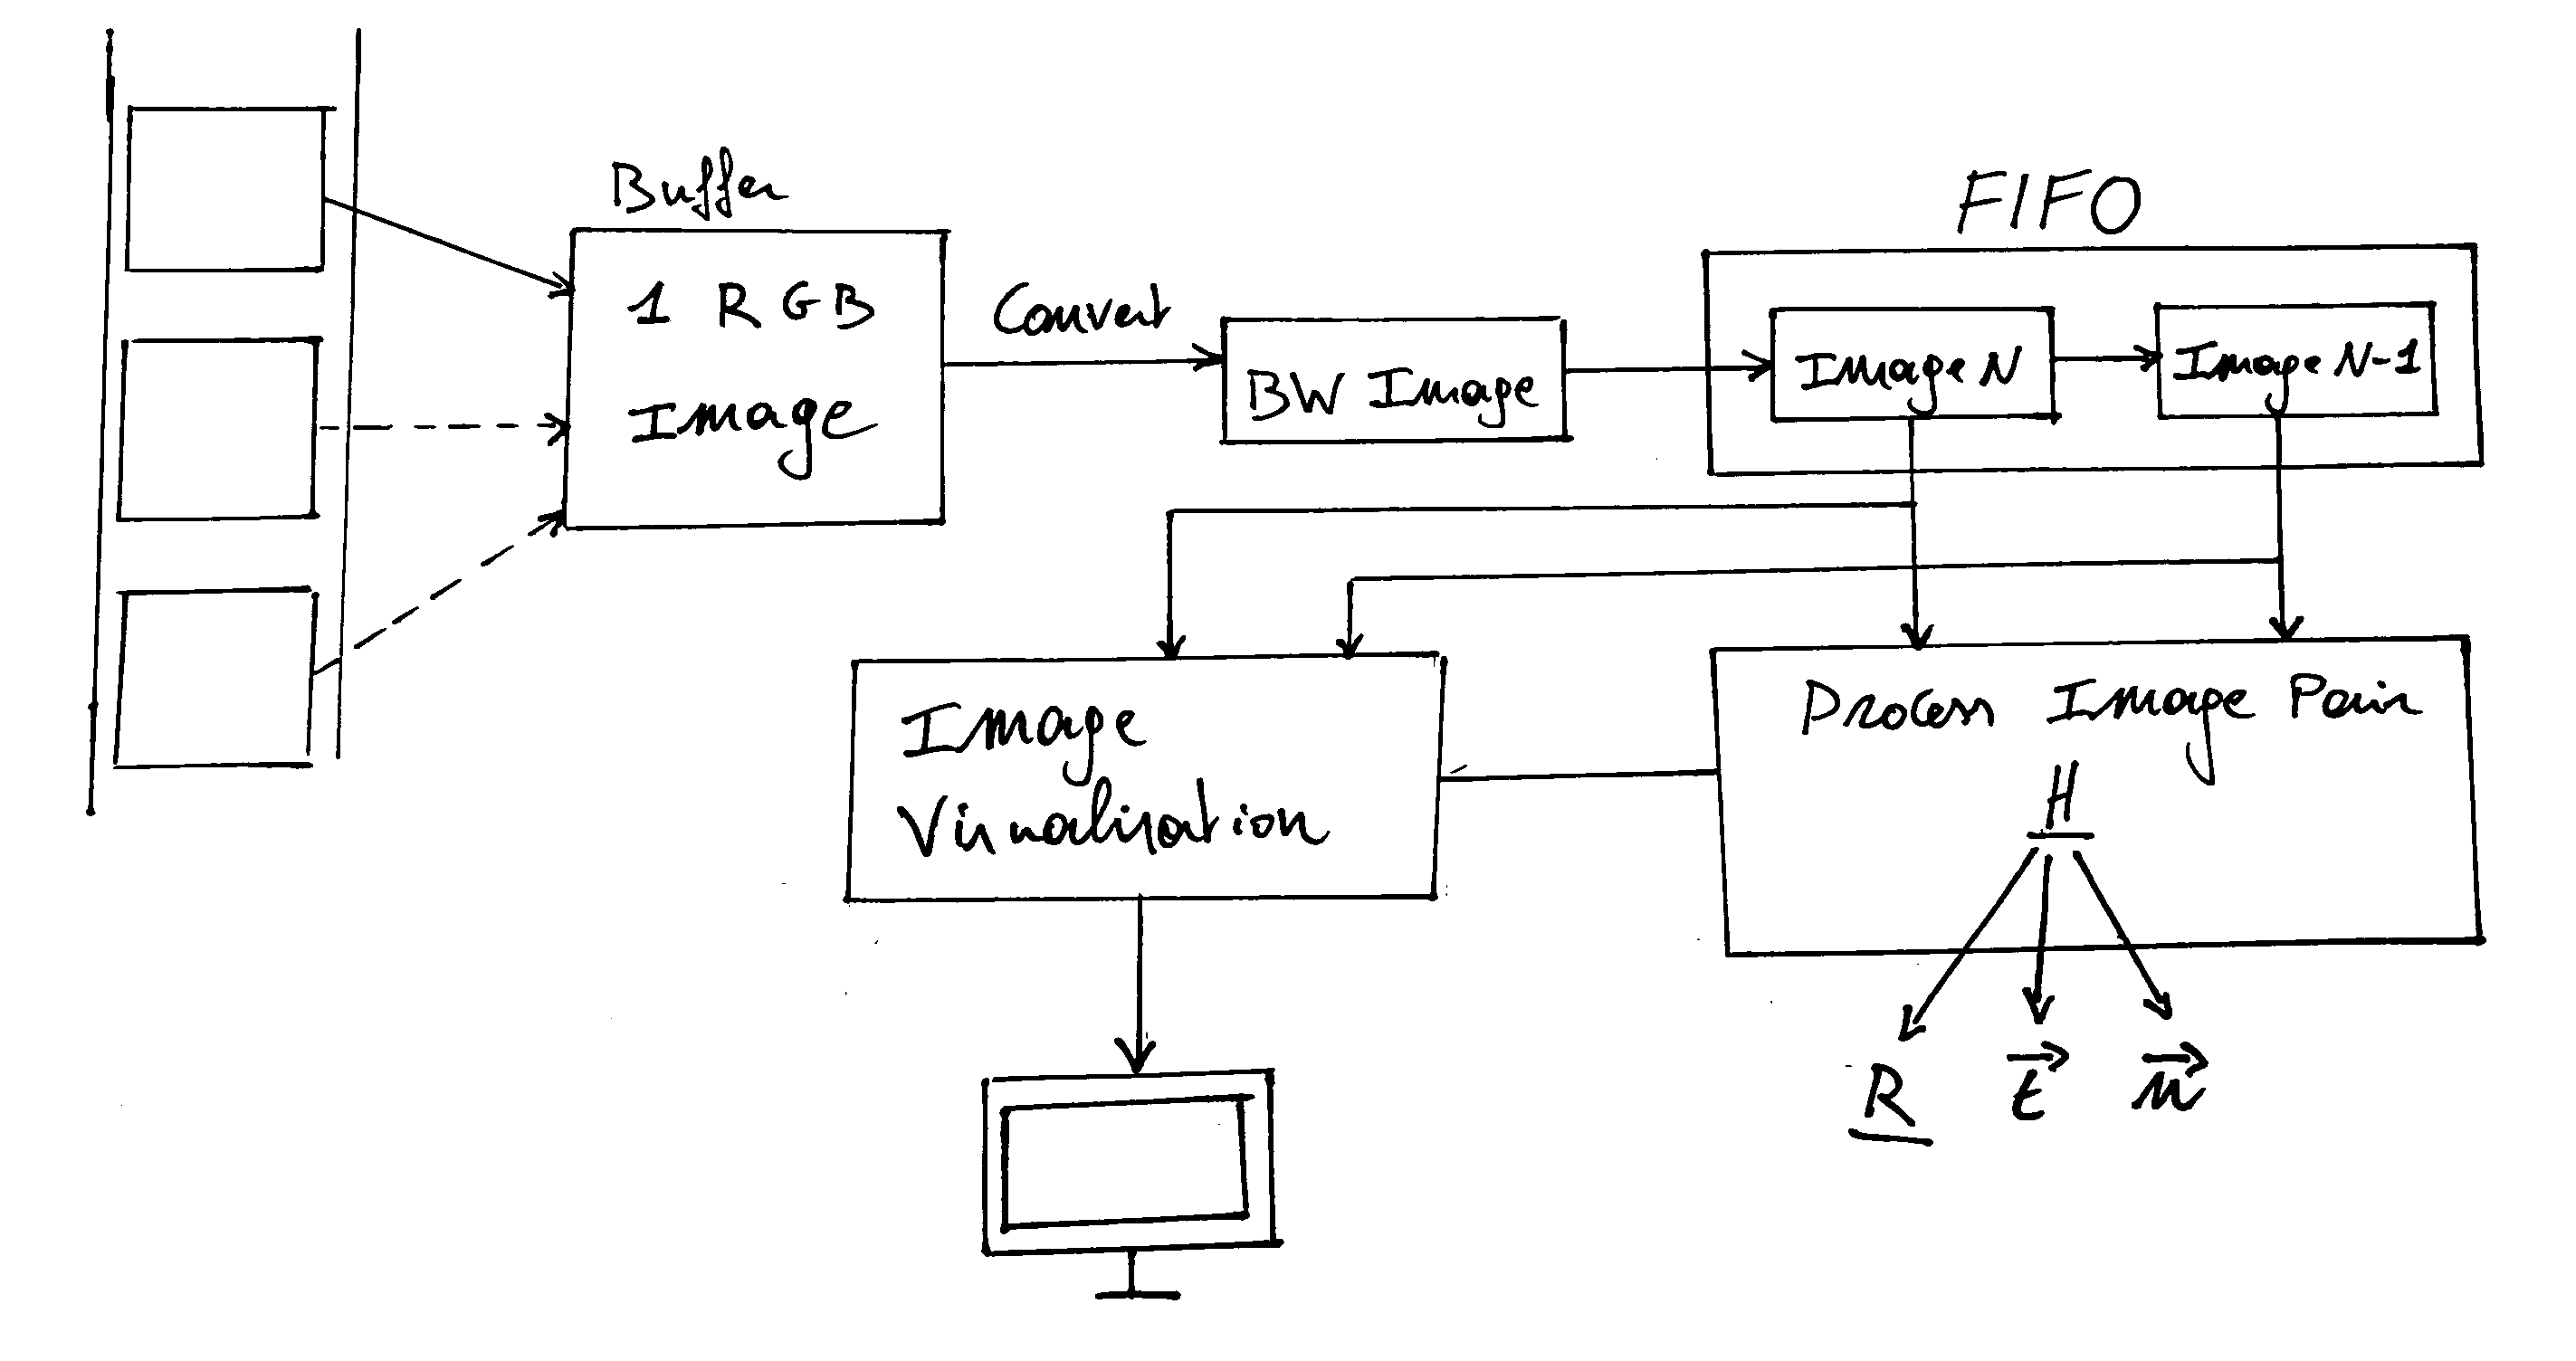 Buffer
1 RGB
Image
Convert
BW Image
FIFO
Image N
Image N-1
Image
Visualisation
Process Image Pair
H
R
t
n